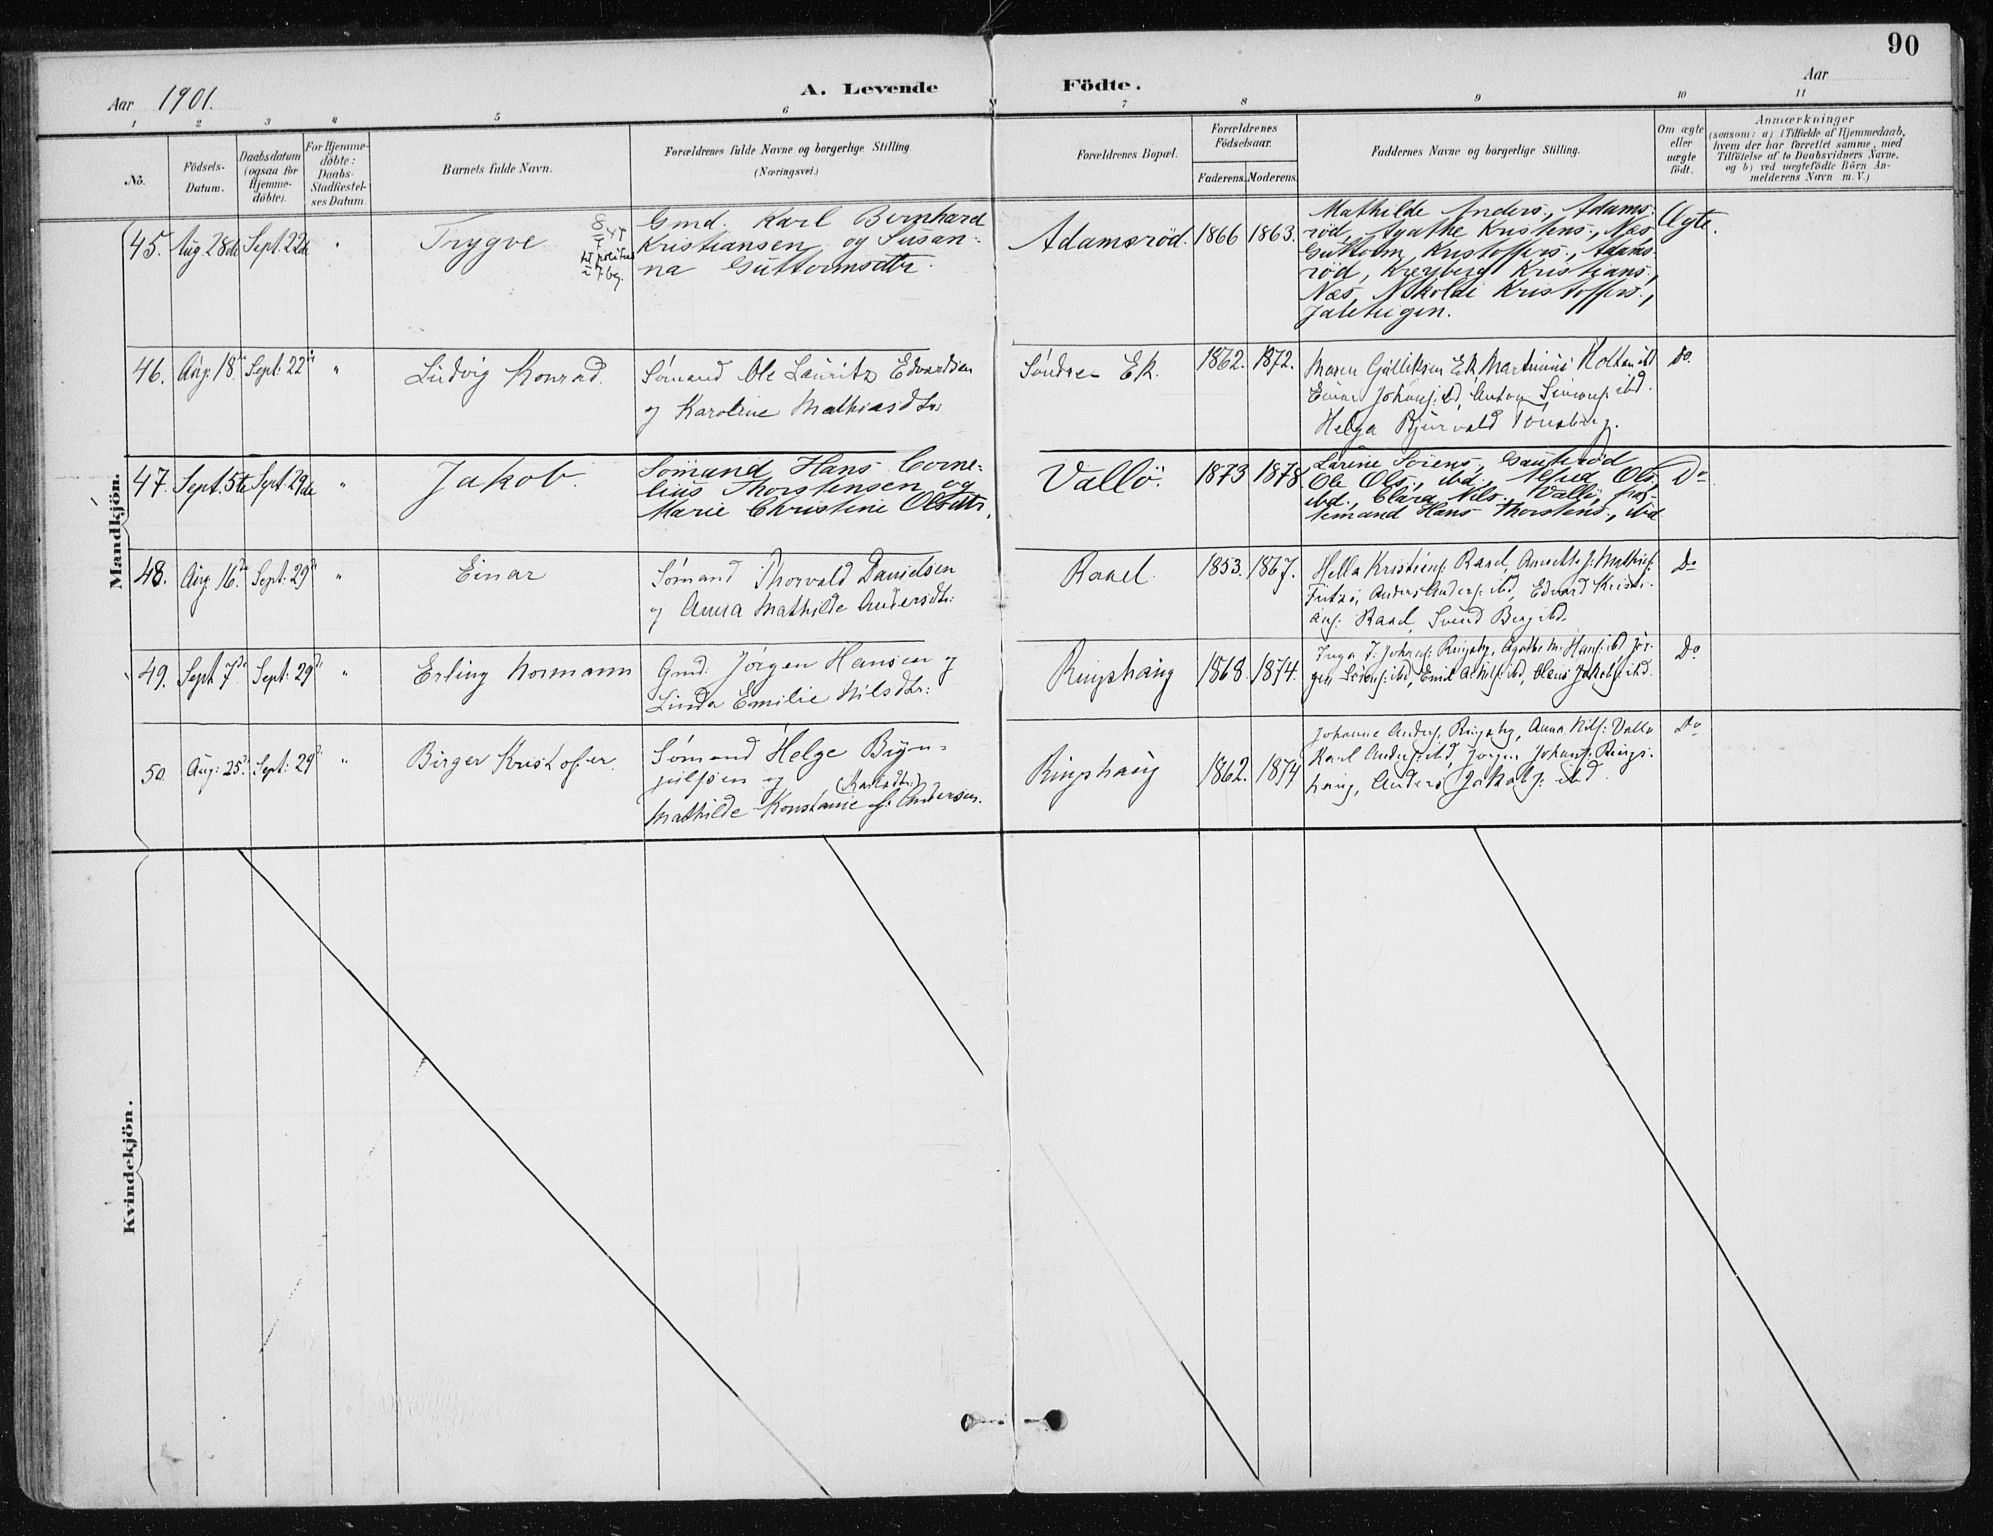 90
Aar 1901.
A. Levende Födte.
Aar
1 2 3 4 5 6 7 8 9 10 11
No.
Födsels-
Datum.
Daabsdatum
(ogsaa for
Hjemme-
døbte).
For Hjemme-
døbte:
Daabs-
Stadfæstel-
ses Datum.
Barnets fulde Navn.
Forældrenes fulde Navne og borgerlige Stilling
(Næringsvei.)
Forældrenes Bopæl.
Forældrenes
Födselsaar.
Faderens. Moderens.
Faddernes Navne og borgerlige Stilling.
Om ægte
eller
uægte
født.
Anmærkninger
(saasom: a) i Tilfælde af Hjemmedaab,
hvem der har forrettet samme, med
Tilføielse af to Daabsvidners Navne,
og b) ved uægtefödte Börn An-
melderens Navn m. V.)
Mandkjön.
45. Aug 28de Sept. 22de "
Trygve
Gmd. Karl Bernhard
Kristiansen og Susan-
na Guttormsdtr.
Adamsröd. 1866 1863.
Mathilde Anders., Adams-
röd, Agathe Kristens., Næs
Guttorm Kristoffers., Adams-
röd, Kristians.,
Næs, Nikolai Kristoffers.,
Ægte.
46. Aug. 18. Sept. 22 "
Ludvig Konrad.
Sömand Ole Lauritz Edvardsen
og Karoline Mathiasdtr:
Söndre Ek. 1862. 1872.
Maren Gulliksen Ek Martinius Holtan
Einar Johans: ibd, Anton Simons: ibd.
Helga Tönsberg.
Do.
47. Sept. 5te Sept. 29de "
Jakob.
Sömand Hans Corne-
lius Thorstensen og
Marie Christine Olsdtr.
Vallö. 1873 1878
Larine Sörens.,
Ole Ols., ibd., Alfred Ols.
ibd., Clara Nils., Vallö,
Hans Thorstens., ibd
Do
48. Aug. 16. Sept. 29 "
Einar
Sömand Thorvald Danielsen
og Anna Mathilde Andersdtr:
Rael. 1853. 1867.
Hella Kristians: Rael,
Anders Anders: ibd, Edvard Kristi-
ans: Rael, Svend Berg ibd.
Do
49. Sept 7de Sept: 29 "
Erling Normann
Gmd: Jörgen Hansen og
Linda Emilie Nilsdtr:
Ringshaug 1868. 1874.
Inga J. Johans: Ringsby, Agathe M. Hans: ibd Jör-
gen Sörens: ibd, Emil A. Nils: ibd, Claus Jakobs: ibd.
Do
50. Aug: 25. Sept: 29 "
Birger Kristofer.
Sömand Helge Bryn-
julfsen og
(Karlsdtr:)
Mathilde Konstanse f: Andersen.
Ringshaug 1862. 1874
Johanne Anders: Ringsby, Anna Nils: Vallö
Karl Anders: ibd, Jörgen Johans: Rings-
haug, Anders Jakobs: ibd.
Do
Kvindekjön.